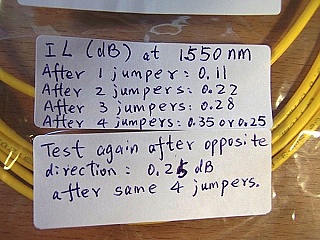 IL (dB) at 1550 nm
After 1 jumper: 0.11
After 2 jumpers: 0.22
After 3 jumpers: 0.28
After 4 jumpers: 0.35 or 0.25
Test again after opposite
direction: 0.25 dB
after same 4 jumpers.